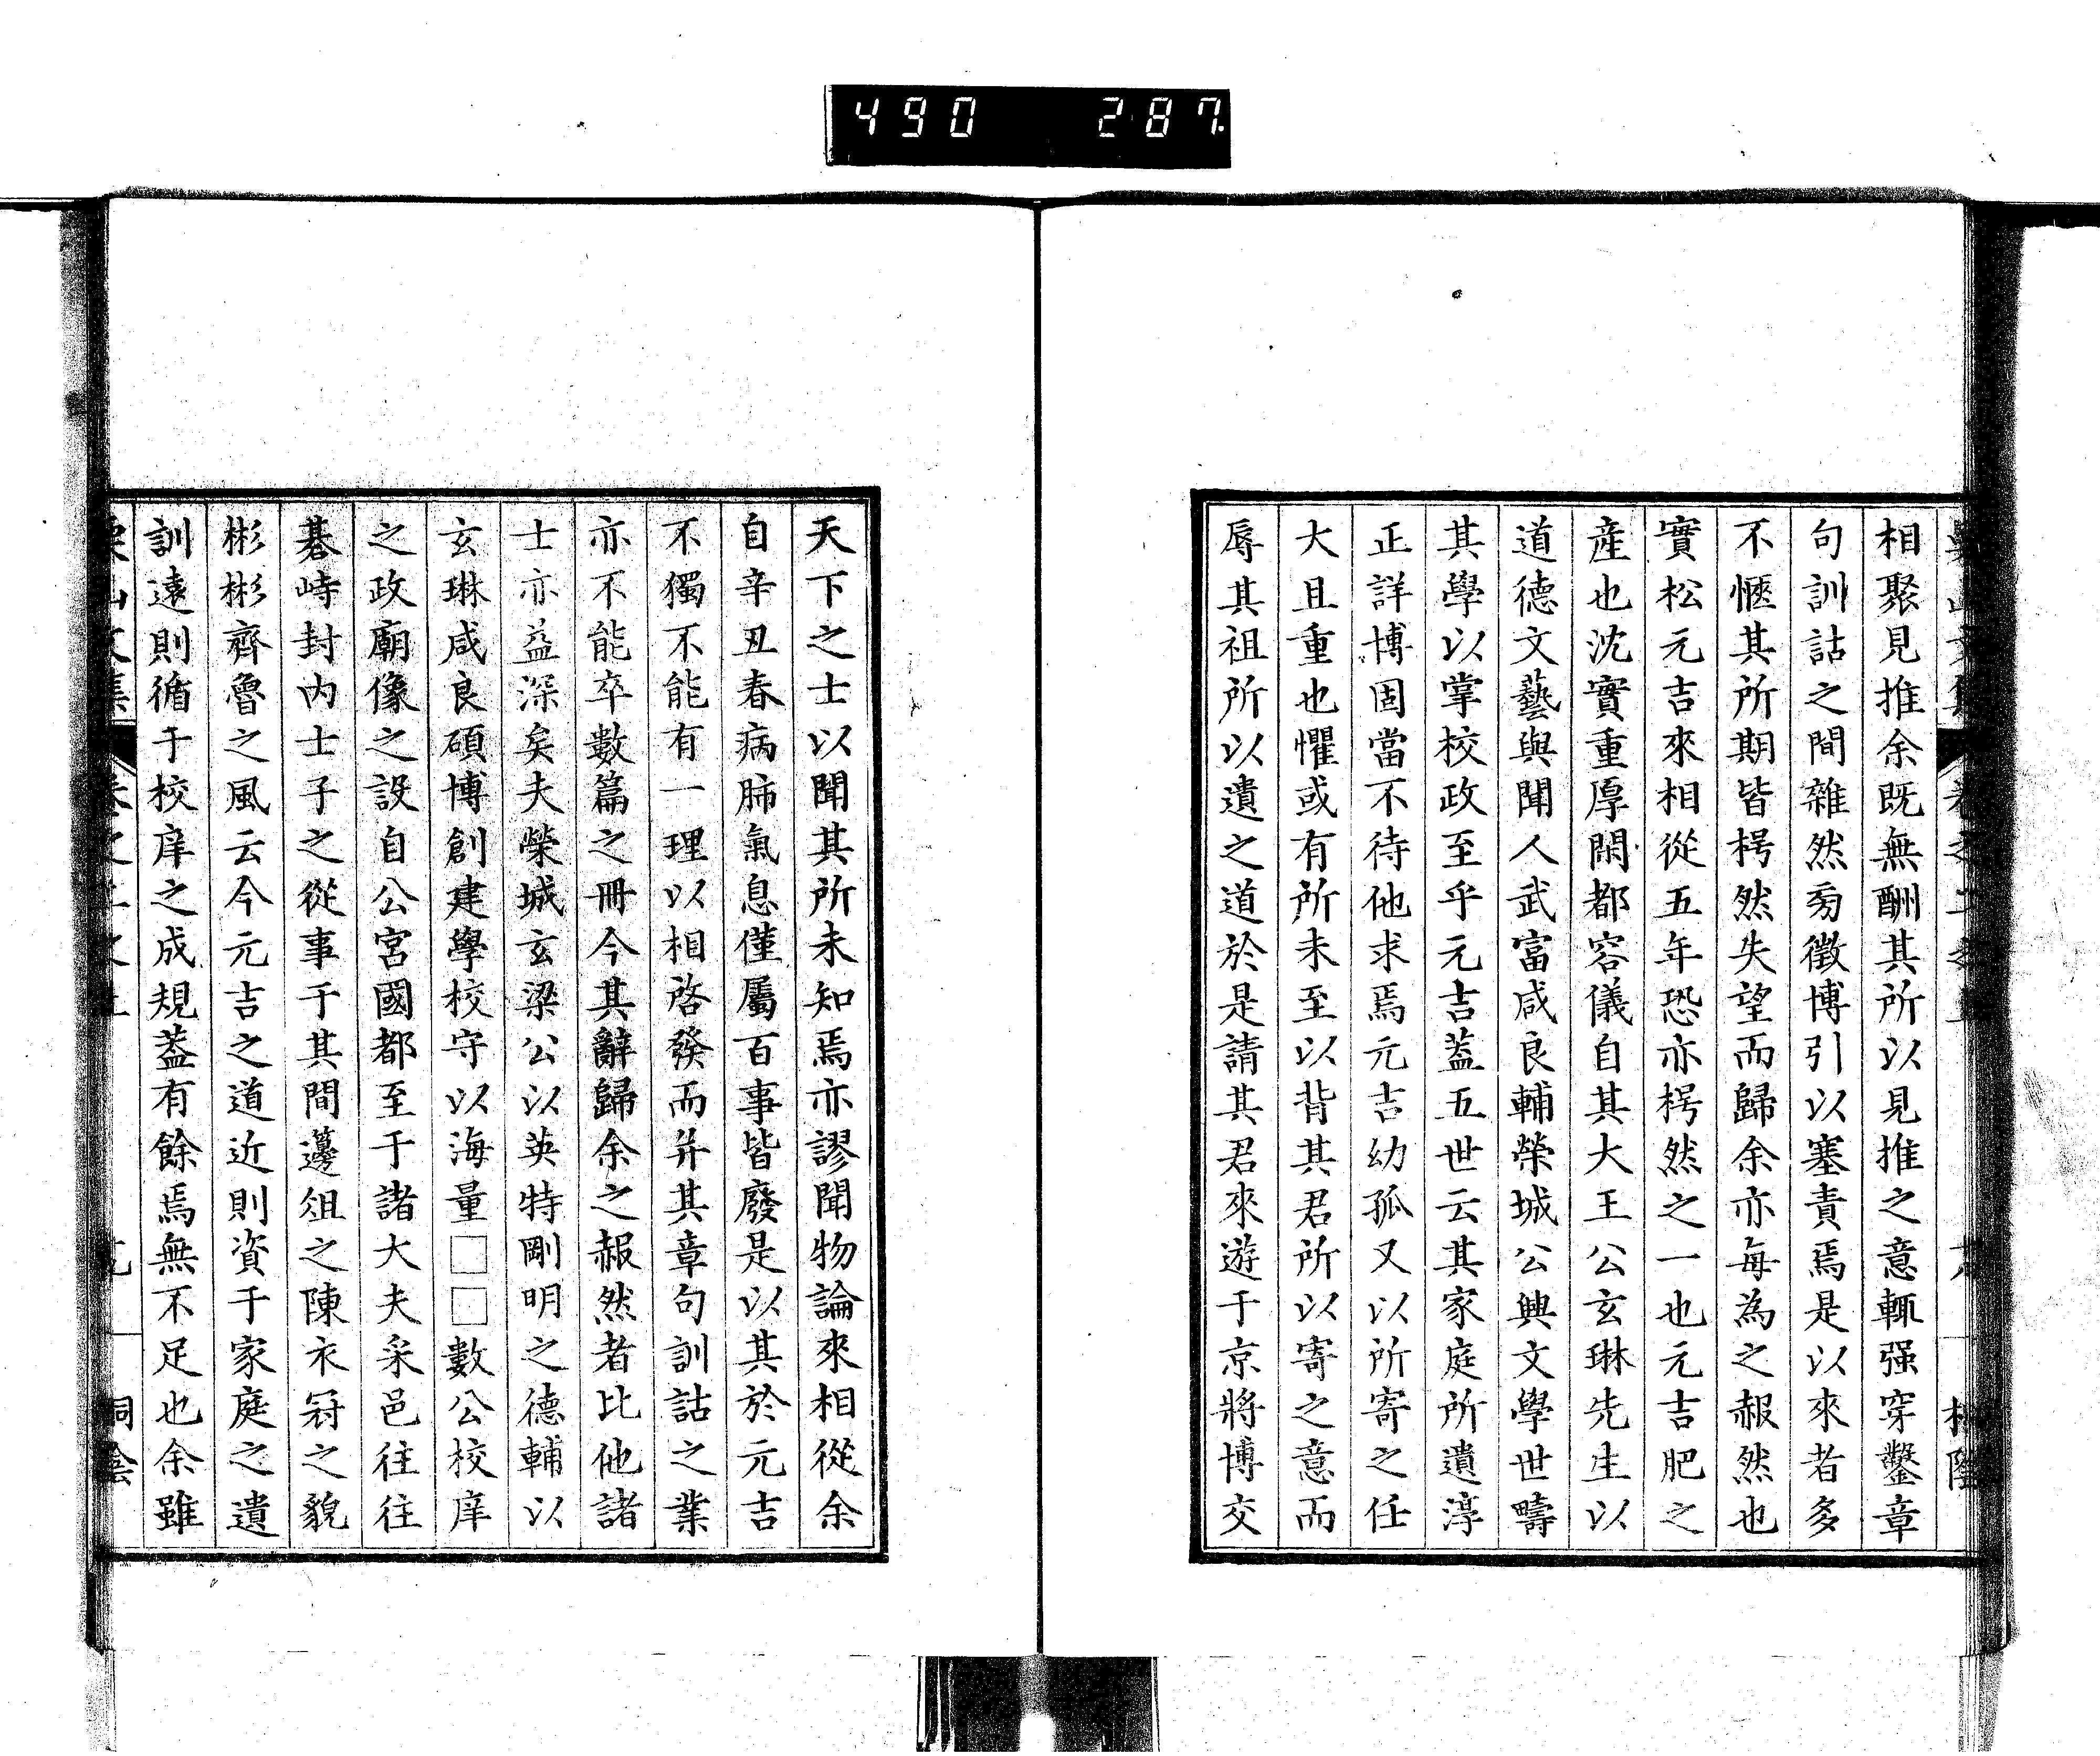 490 287
相聚見推余既無酬其所以見推之意輒强穿鑿章
句訓詁之間雜然旁徵博引以塞責焉是以來者多
不愜其所期皆枵然失望而歸余亦每為之赧然也
實松元吉來相從五年恐亦枵然之一也元吉肥之
産也沈實重厚閑都容儀自其大王公玄琳先生以
道德文藝與聞人武富咸良輔榮城公興文學世疇
其學以掌校政至乎元吉蓋五世云其家庭所遺淳
正詳博固當不待他求焉元吉幼孤又以所寄之任
大且重也懼或有所未至以背其君所以寄之意而
辱其祖所以遺之道於是請其君來遊于京將博交
天下之士以聞其所未知焉亦謬聞物論來相從余
自辛丑春病肺氣息僅屬百事皆廢是以其於元吉
不獨不能有一理以相啓發而并其章句訓詁之業
亦不能卒數篇之冊今其辭歸余之赧然者比他諸
士亦益深矣夫榮城玄梁公以英特剛明之德輔以
玄琳咸良碩博創建學校守以海量□□數公校庠
之政廟像之設自公宮國都至于諸大夫采邑往往
碁峙封內士子之從事于其間籩俎之陳衣冠之貌
彬彬齊魯之風云今元吉之道近則資于家庭之遺
訓遠則循于校庠之成規蓋有餘焉無不足也余雖